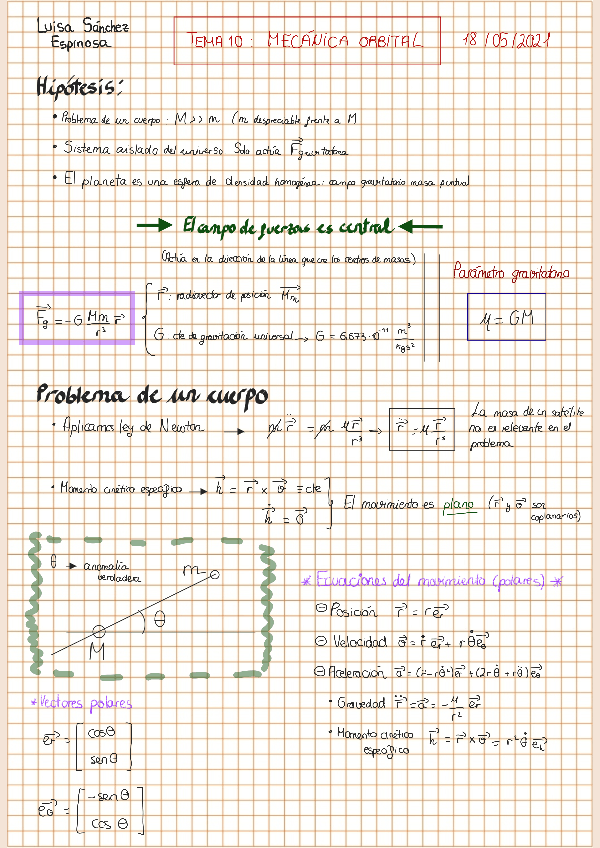 Luisa Sánchez
Espinosa
TEMA 10: MECÁNICA ORBITAL
18/05/2021
Hipótesis:
• Problema de un cuerpo: M >> m (m despreciable frente a M
• Sistema aislado del universo Solo actúa F⃗gravitatoria
• El planeta es una esfera de densidad homogénea: campo gravitatorio masa puntual
→ El campo de fuerzas es central ←
(Actúa en la dirección de la línea que une los centros de masas)
F⃗g = -G Mm/r³ r⃗
r⃗: radiovector de posición M⃗m
G cte de gravitación universal → G = 6,673·10⁻¹¹ m³/kg s²
Parámetro gravitatorio
μ = GM
Problema de un cuerpo
• Aplicamos ley de Newton → m r⃗̈ = -m μ r⃗/r³ → r⃗̈ = -μ r⃗/r³
La masa de un satélite
no es relevante en el
problema
• Momento cinético específico → h⃗ = r⃗ x v⃗ ≡ cte
h⃗̇ = 0⃗
El movimiento es plano (r⃗ y v⃗ son
coplanarios)
θ → anomalía
verdadera
m
θ
M
* Ecuaciones del movimiento (polares) *
⊖ Posición r⃗ = r e⃗r
⊖ Velocidad v⃗ = ṙ e⃗r + r θ̇ e⃗θ
⊖ Aceleración a⃗ = (r̈ - rθ̇²) e⃗r + (2ṙθ̇ + rθ̈) e⃗θ
• Gravedad r⃗̈ = a⃗ = -μ/r² e⃗r
• Momento cinético
específico
h⃗ = r⃗ x v⃗ = r² θ̇ e⃗h
* Vectores polares
e⃗r = [cosθ
senθ]
e⃗θ = [-senθ
cosθ]